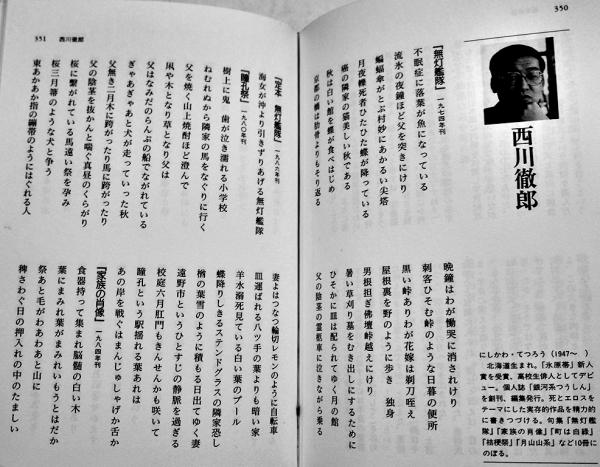 350
西川徹郎
にしかわ・てつろう(1947〜 )
北海道生まれ。「氷原帯」新人
賞を受賞、高校生俳人としてデビ
ュー。個人誌「銀河系つうしん」
を創刊、編集発行。死とエロスを
テーマにした実存的作品を精力的
に書きつづける。句集「無灯艦
隊」「家族の肖像」「町は白緑」
「桔梗祭」「月山山系」など10冊に
のぼる。
『無灯艦隊』一九七四年刊
不眠症に落葉が魚になっている
流氷の夜鐘ほど父を突きにけり
蝙蝠傘がとぶ村妙にあかるい尖塔
月夜轢死者ひたひた蝶が降っている
癌の隣家の猫美しい秋である
秋は白い館を蝶が食べはじめ
京都の橋は肋骨よりもそり返る
晩鐘はわが慟哭に消されけり
刺客ひそむ峠のような日暮の便所
黒い峠ありわが花嫁は剃刀咥え
屋根裏を野のように歩き 独身
男根担ぎ佛壇峠越えにけり
暑い草刈り墓をむき出しにするために
ひそかに皿は配られてゆく月の館
父の陰茎の霊柩車に泣きながら乗る
351 西川徹郎
『定本 無灯艦隊』一九八六年刊
海女が沖より引きずりあげる無灯艦隊
『瞳孔祭』一九八〇年刊
樹上に鬼 歯が泣き濡れる小学校
ねむれぬから隣家の馬をなぐりに行く
父を焼く山上焼酎ほど澄んで
凧や木となり草となり父は
父はなみだのらんぷの船でながれている
ぎゃあぎゃあと犬が走っていった秋
父無き二月木に跨がったり馬に跨がったり
父の陰茎を抜かんと喘ぐ真昼のくらがり
桜に繋がれている馬遠い祭を孕み
桜三月箒のような犬と争う
東あかあか指の繃帯のようにはぐれる人
妻よはつなつ輪切レモンのように自転車
皿運ばれる八ツ手の葉よりも暗い家
羊水溺死見ている白い葉のプール
蝶降りしきるステンドグラスの隣家恐し
楢の葉雪のように積もる日出てゆく妻
遠野市というひとすじの静脈を過ぎる
校庭六月肛門もきんせんかも咲いて
瞳孔という駅揺れる葉あれは
あの岸を戦ぐはまんじゅしゃげか舌か
『家族の肖像』一九八四年刊
食器持って集まれ脳髄の白い木
葉にまみれ葉がまみれいもうとはだか
祭あと毛がわあわあと山に
稗さわぐ日の押入れの中のたましい